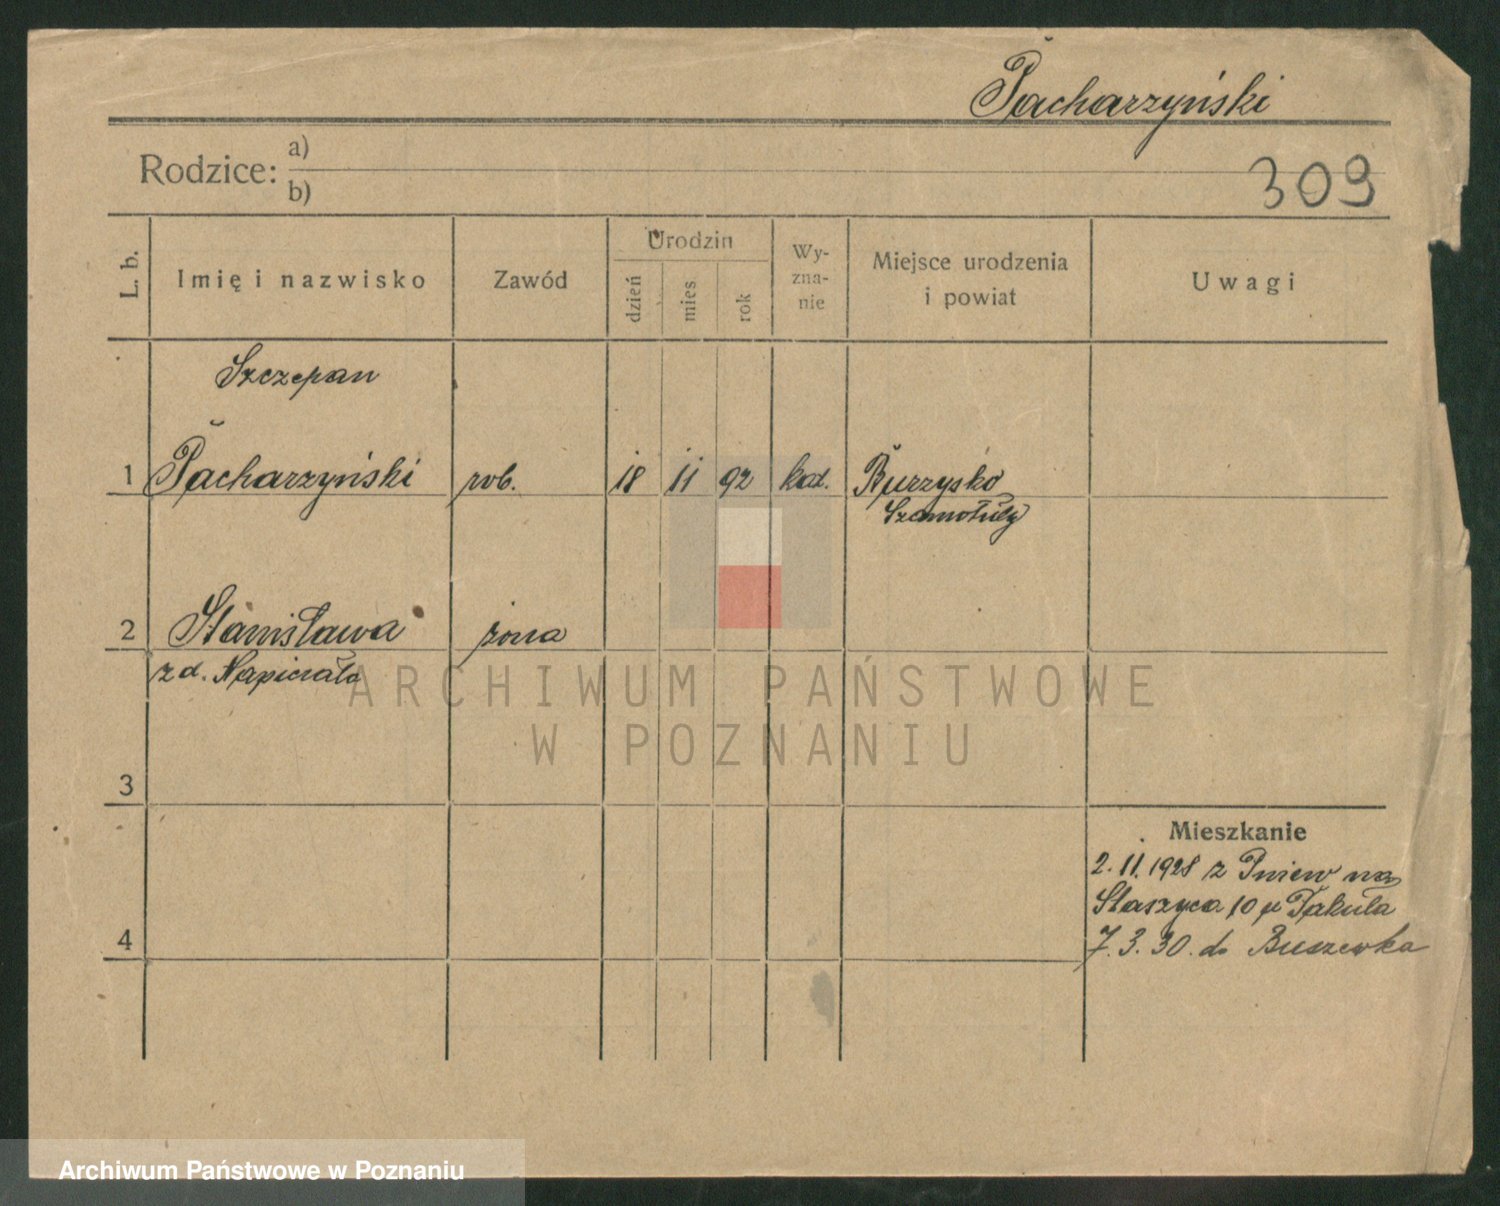 Pacharzyński
Rodzice: a)
b)
309
L. b.
Imię i nazwisko
Zawód
Urodzin
dzień
mies
rok
Wy-
zna-
nie
Miejsce urodzenia
i powiat
Uwagi
Szczepan
1 Pacharzyński rob. 18 11 92 kat.
Szamotuły
2 Stanisława żona
z d. Napierała
3
4
Mieszkanie
2.11.1928 z Pniew na
Staszyca 10 u
7.3.30. do Buszewka
ARCHIWUM PAŃSTWOWE
W POZNANIU
Archiwum Państwowe w Poznaniu